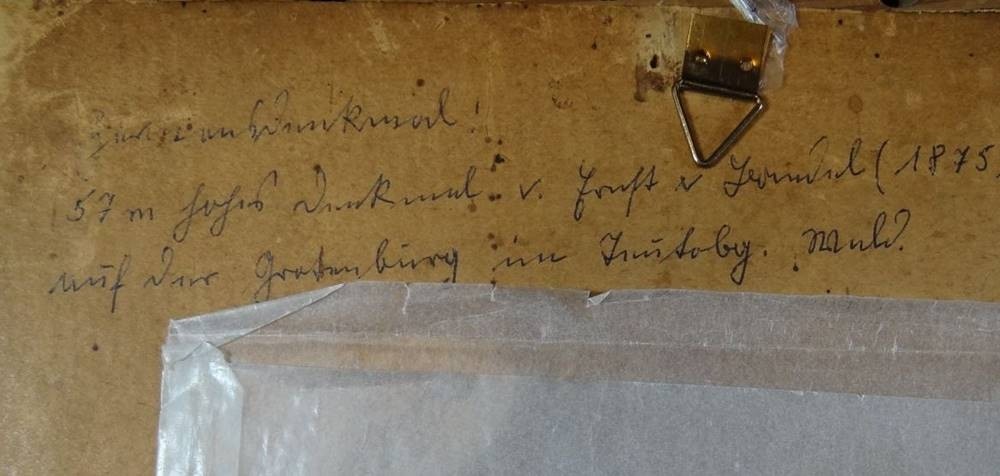 Hermannsdenkmal!
57 m hohes Denkmal v. Ernst v Bandel (1875)
auf der Grotenburg im Teutobg. Wald.